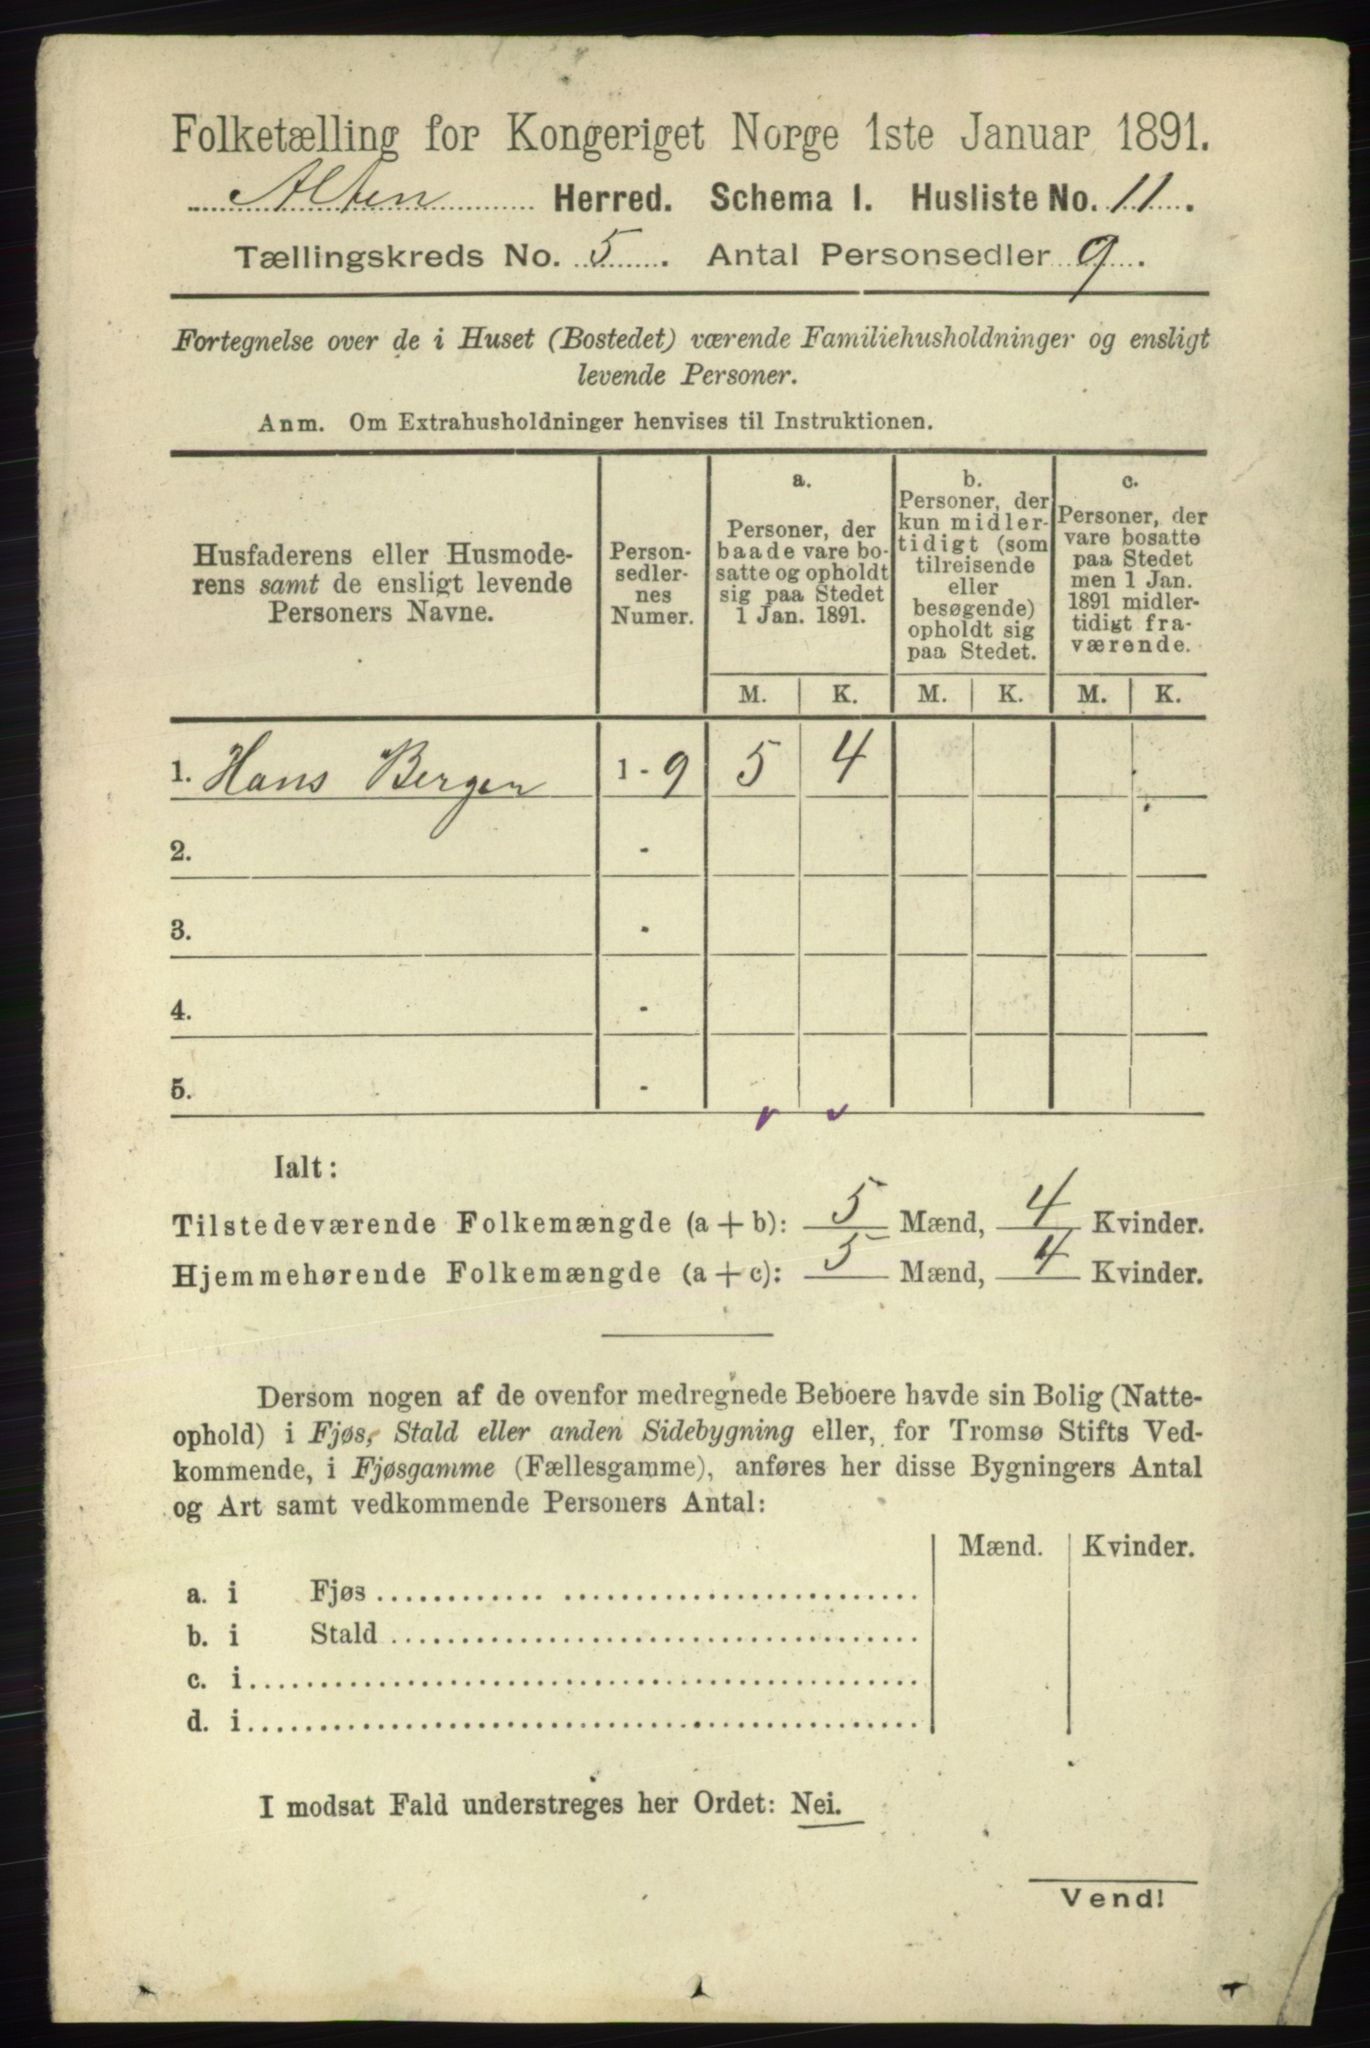 Folketælling for Kongeriget Norge 1ste Januar 1891.
Alten Herred. Schema I. Husliste No. 11.
Tællingskreds No. 5. Antal Personsedler 9.
Fortegnelse over de i Huset (Bostedet) værende Familiehusholdninger og ensligt
levende Personer.
Anm. Om Extrahusholdninger henvises til Instruktionen.
Husfaderens eller Husmode-
rens samt de ensligt levende
Personers Navne.
Person-
sedler-
nes
Numer.
a.
Personer, der
baade vare bo-
satte og opholdt
sig paa Stedet
1 Jan. 1891.
b.
Personer, der
kun midler-
tidigt (som
tilreisende
eller
besøgende)
opholdt sig
paa Stedet.
c.
Personer, der
vare bosatte
paa Stedet
men 1 Jan.
1891 midler-
tidigt fra-
værende.
M. K. M. K. M. K.
1. Hans Bergen 1 - 9 5 4
2. -
3. -
4. -
5. -
Ialt:
Tilstedeværende Folkemængde (a + b): 5 Mænd, 4 Kvinder.
Hjemmehørende Folkemængde (a + c): 5 Mænd, 4 Kvinder.
Dersom nogen af de ovenfor medregnede Beboere havde sin Bolig (Natte-
ophold) i Fjøs, Stald eller anden Sidebygning eller, for Tromsø Stifts Ved-
kommende, i Fjøsgamme (Fællesgamme), anføres her disse Bygningers Antal
og Art samt vedkommende Personers Antal:
Mænd. Kvinder.
a. i Fjøs
b. i Stald
c. i
d. i
I modsat Fald understreges her Ordet: Nei.
Vend!